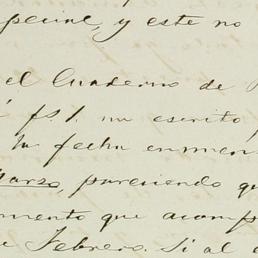 pecial, y este no
el Cuaderno de
fs. 1. un escrito
la fecha enmen
Marzo, pareciendo qu
mento que acomp
e Febrero. Si al